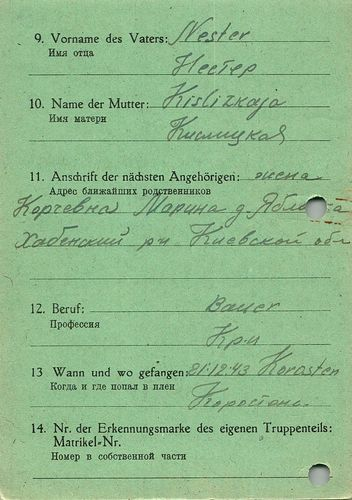 9. Vorname des Vaters: Nester
Имя отца
Нестер
10. Name der Mutter: Kislizkaja
Имя матери
Кислицкая
11. Anschrift der nächsten Angehörigen: жена
Адрес ближайших родственников
Корчевна Марина д.
Хабенский рн Киевской обл
12. Beruf: Bauer
Профессия
Кр-н
13 Wann und wo gefangen: 21.12.43 Korosten
Когда и где попал в плен
14. Nr. der Erkennungsmarke des eigenen Truppenteils:
Matrikel-Nr.
Номер в собственной части